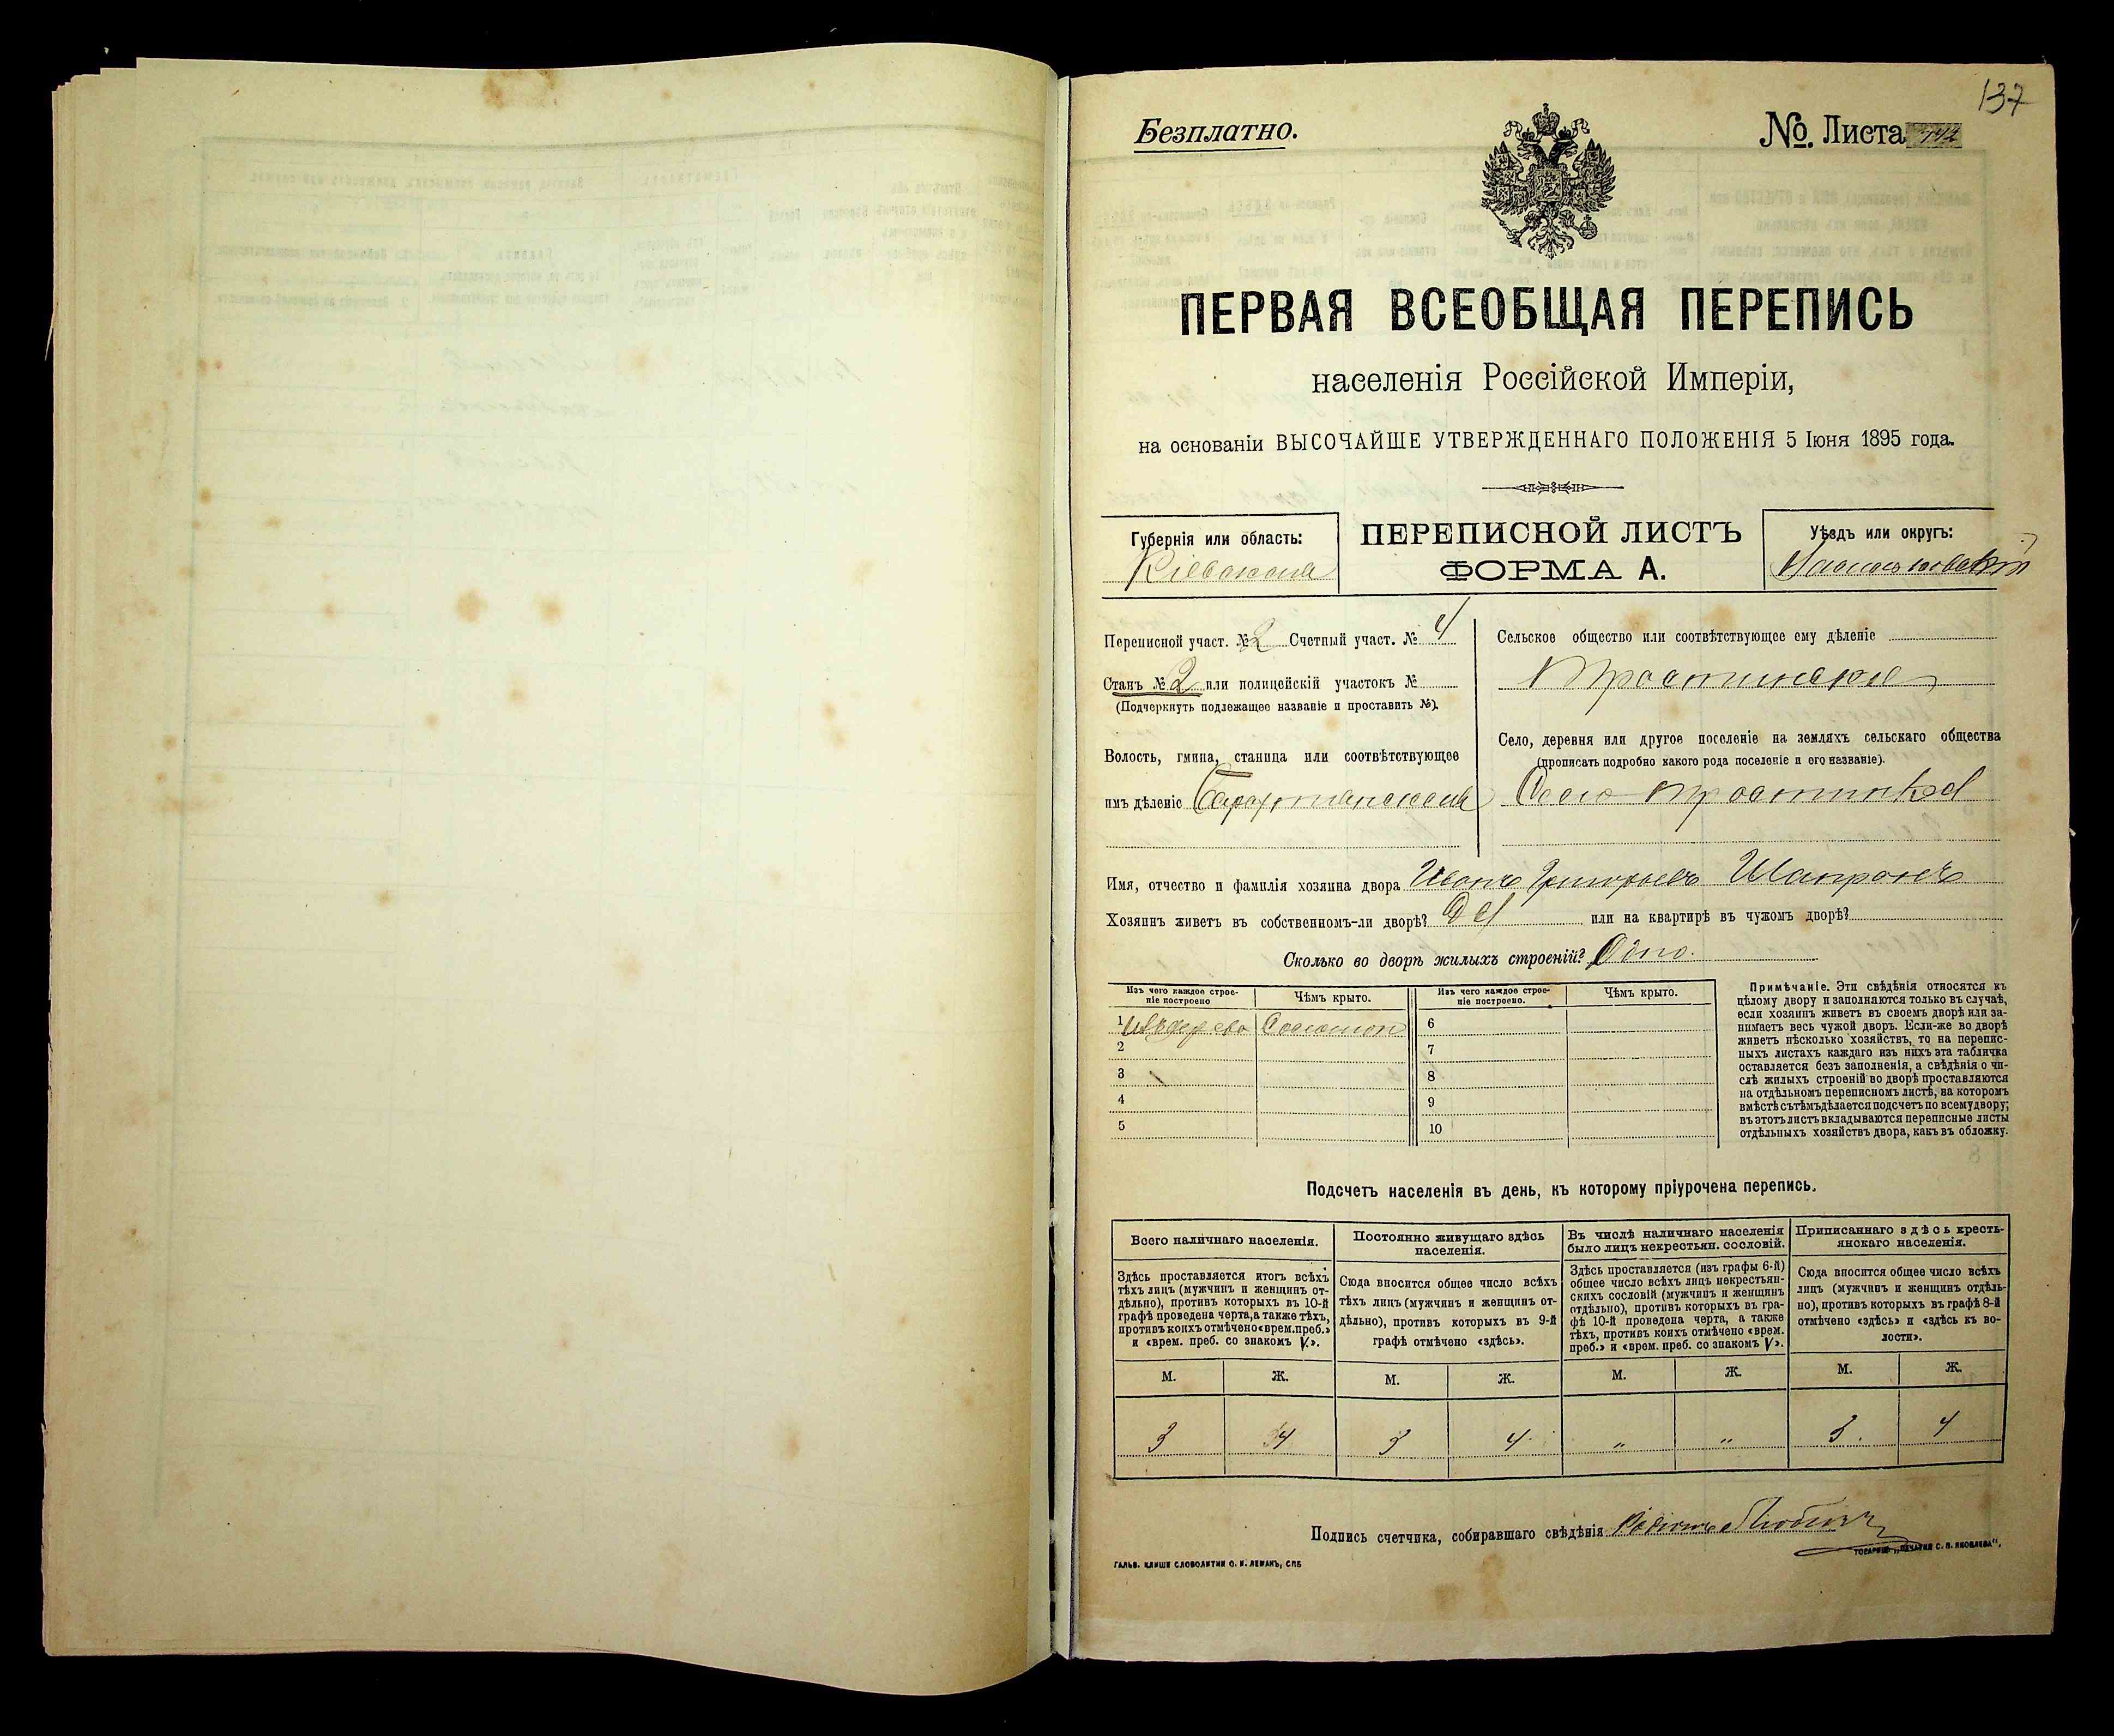 137
Безплатно.
№ Листа
ПЕРВАЯ ВСЕОБЩАЯ ПЕРЕПИСЬ
населенія Россійской Имперіи,
на основаніи ВЫСОЧАЙШЕ УТВЕРЖДЕННАГО ПОЛОЖЕНІЯ 5 Іюня 1895 года.
Губернія или область:
Кіевская
ПЕРЕПИСНОЙ ЛИСТЪ
ФОРМА А.
Уѣздъ или округъ:
Васильковскій
Переписной участ. № 2 Счетный участ. № 4
Станъ № 2 или полицейскій участокъ №
(Подчеркнуть подлежащее названіе и проставить №).
Волость, гмина, станица или соотвѣтствующее
имъ дѣленіе
Сельское общество или соотвѣтствующее ему дѣленіе
Тростинское
Село, деревня или другое поселеніе на земляхъ сельскаго общества
(прописать подробно какого рода поселеніе и его названіе).
Село Тростинка
Имя, отчество и фамилія хозяина двора Иванъ Григорьевъ Шапранъ
Хозяинъ живетъ въ собственномъ-ли дворѣ? Да или на квартирѣ въ чужомъ дворѣ?
Сколько во дворѣ жилыхъ строеній? Одно.
Изъ чего каждое строе-
ніе построено
Чѣмъ крыто.
Изъ чего каждое строе-
ніе построено.
Чѣмъ крыто.
1 Соломою 6
2 7
3 8
4 9
5 10
Примѣчаніе. Эти свѣдѣнія относятся къ
цѣлому двору и заполняются только въ случаѣ,
если хозяинъ живетъ въ своемъ дворѣ или за-
нимаетъ весь чужой дворъ. Если-же во дворѣ
живетъ нѣсколько хозяйствъ, то на перепис-
ныхъ листахъ каждаго изъ нихъ эта табличка
оставляется безъ заполненія, а свѣдѣнія о чи-
слѣ жилыхъ строеній во дворѣ проставляются
на отдѣльномъ переписномъ листѣ, на которомъ
вмѣстѣ съ тѣмъ дѣлается подсчетъ по всему двору;
въ этотъ листъ вкладываются переписные листы
отдѣльныхъ хозяйствъ двора, какъ въ обложку.
Подсчетъ населенія въ день, къ которому пріурочена перепись.
Всего наличнаго населенія.
Здѣсь проставляется итогъ всѣхъ
тѣхъ лицъ (мужчинъ и женщинъ от-
дѣльно), противъ которыхъ въ 10-й
графѣ проведена черта, а также тѣхъ,
противъ коихъ отмѣчено «врем. преб.»
и «врем. преб. со знакомъ V».
Постоянно живущаго здѣсь
населенія.
Сюда вносится общее число всѣхъ
тѣхъ лицъ (мужчинъ и женщинъ от-
дѣльно), противъ которыхъ въ 9-й
графѣ отмѣчено «здѣсь».
Въ числѣ наличнаго населенія
было лицъ некрестьян. сословій.
Здѣсь проставляется (изъ графы 6-й)
общее число всѣхъ лицъ некрестьян-
скихъ сословій (мужчинъ и женщинъ
отдѣльно), противъ которыхъ въ гра-
фѣ 10-й проведена черта, а также
тѣхъ, противъ коихъ отмѣчено «врем.
преб.» и «врем. преб. со знакомъ V».
Приписаннаго здѣсь кресть-
янскаго населенія.
Сюда вносится общее число всѣхъ
лицъ (мужчинъ и женщинъ отдѣль-
но), противъ которыхъ въ графѣ 8-й
отмѣчено «здѣсь» и «здѣсь къ во-
лости».
М. Ж. М. Ж. М. Ж. М. Ж.
3 4 3 4 " " 3 4
Подпись счетчика, собиравшаго свѣдѣнія Родіонъ
ГАЛЬВ. КЛИШЕ СЛОВОЛИТНИ О. И. ЛЕМАНЪ, СПБ
ТОВАРИЩ. „ПЕЧАТНЯ С. П. ЯКОВЛЕВА".